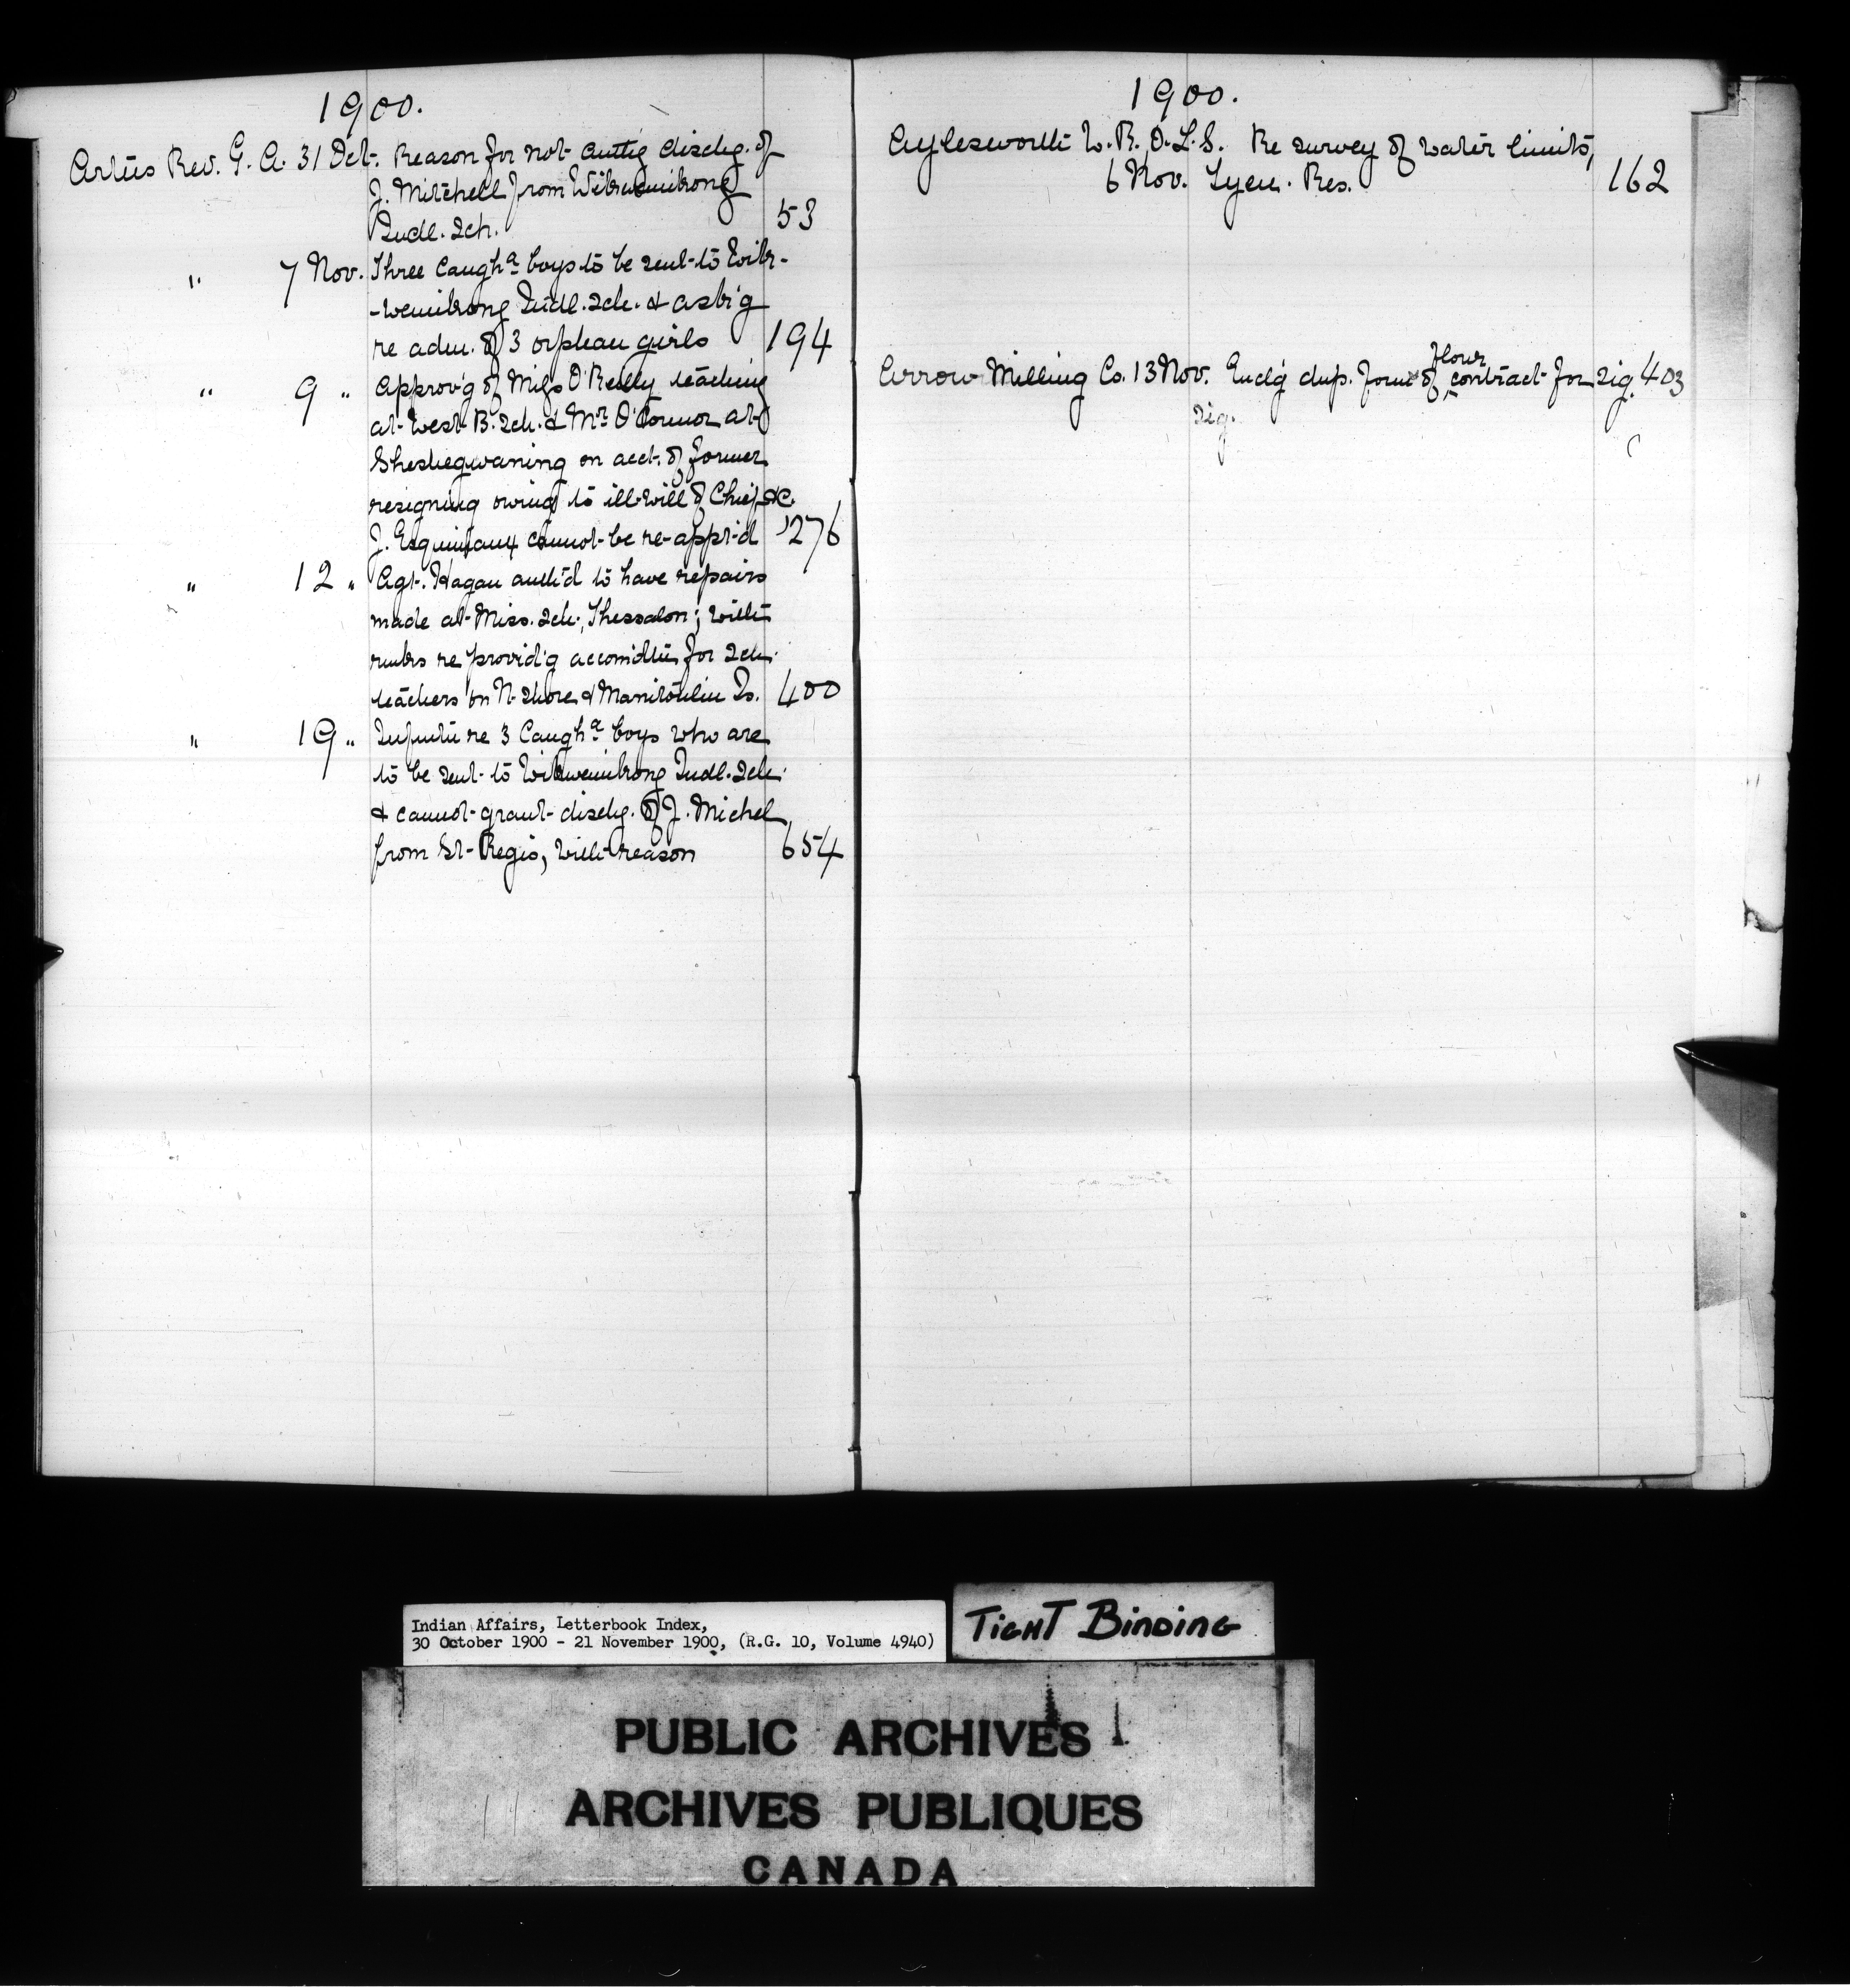 1900.
Artus Rev. G. A. 31 Oct. Reason for not auth'g dischg. of
J. Mitchell from Wikwemikong
Indl. Sch. 53
" 7 Nov. Three Caugh<sup>a</sup> boys to be sent to Wik-
-wemikong Indl. Sch. & ask'g
re adm. of 3 orphan girls 194
" 9 " Approv'g of Miss O'Reilly teaching
at West B. Sch. & Mr. O'Connor at
Sheshegwaning on acct. of former
resigning owing to ill-will of Chief &c.
J. Esquimaux cannot be re-appt'd 276
" 12 " Agt. Hagan auth'd to have repairs
made at Miss. Sch., Thessalon; with
rmks re provid'g accom'dtn for Sch.
teachers on N. Shore & Manitoulin Is. 400
" 19 " Infmtn re 3 Caugh<sup>a</sup> boys who are
to be sent to Wikwemikong Indl. Sch.
& cannot grant dischg. of J. Michel
from St. Regis, with reason 654
1900.
Aylesworth W. R. O.L.S. Re survey of water limits,
6 Nov. Tyen. Res. 162
flour
Arrow Milling Co. 13 Nov. Encl'g dup. form of contract for sig. 403
sig.
Indian Affairs, Letterbook Index,
30 October 1900 - 21 November 1900, (R.G. 10, Volume 4940)
TIGHT BINDING
PUBLIC ARCHIVES
ARCHIVES PUBLIQUES
CANADA